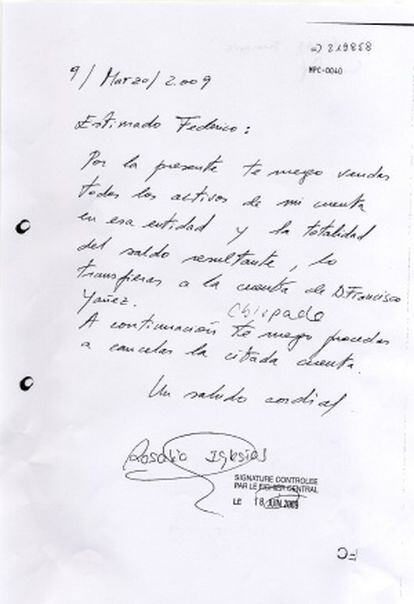 219858
MPC-0040
9/Marzo/2.009
Estimado Federico:
Por la presente te ruego vendas
todos los activos de mi cuenta
en esa entidad y la totalidad
del saldo resultante, lo
transfieras a la cuenta de D. Francisco
Yañez.
Chispado
A continuación te ruego procedas
a cancelar la citada cuenta.
Un saludo cordial.
Rosalía Iglesias
SIGNATURE CONTROLEE
PAR LE FICHIER CENTRAL
LE 18 JUN 2009
FC